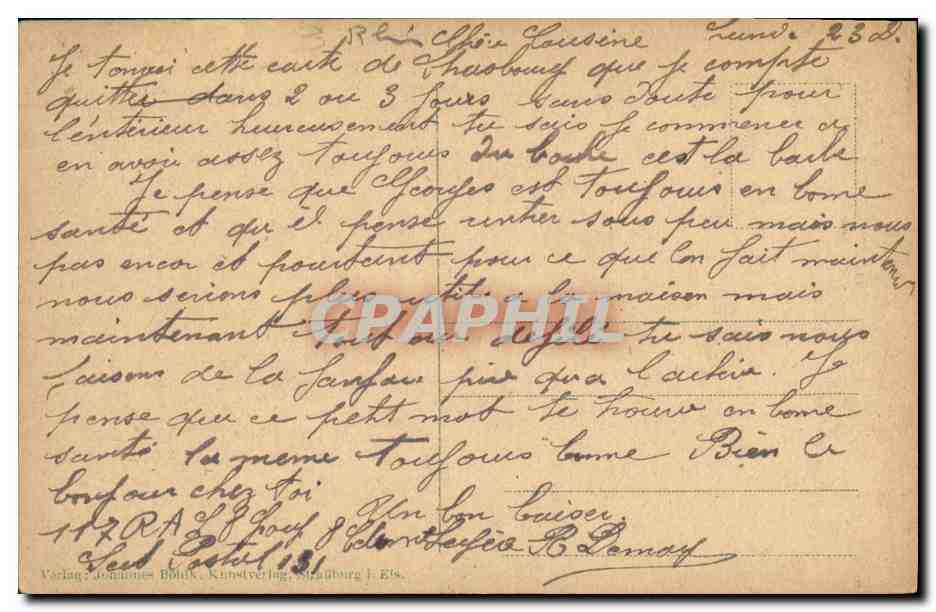 Rhin Chère Cousine Lundi 23 D.
Je t'envoi cette carte de Strasbourg que je compte
quitter dans 2 ou 3 jours sans doute pour
l'intérieur heureusement tu sais je commence a
en avoir assez toujours du boche c'est la barbe
Je pense que Georges est toujours en bonne
santé et qu'il pense rentrer sous peu mais nous
pas encor et pourtant pour ce que l'on fait maintenant
nous serions plus utile a la maison mais
maintenant tout au défilé tu sais nous
faisons de la fanfare pire qu'a l'active. Je
pense que ce petit mot te trouve en bonne
santé la meme toujours bonne Bien le
bonjour chez toi
Un bon baiser.
117 RAL 8
R Demay
Sect Postal 131
CPAPHIL
Verlag: Johannes Böhik, Kunstverlag, Straßburg i. Els.